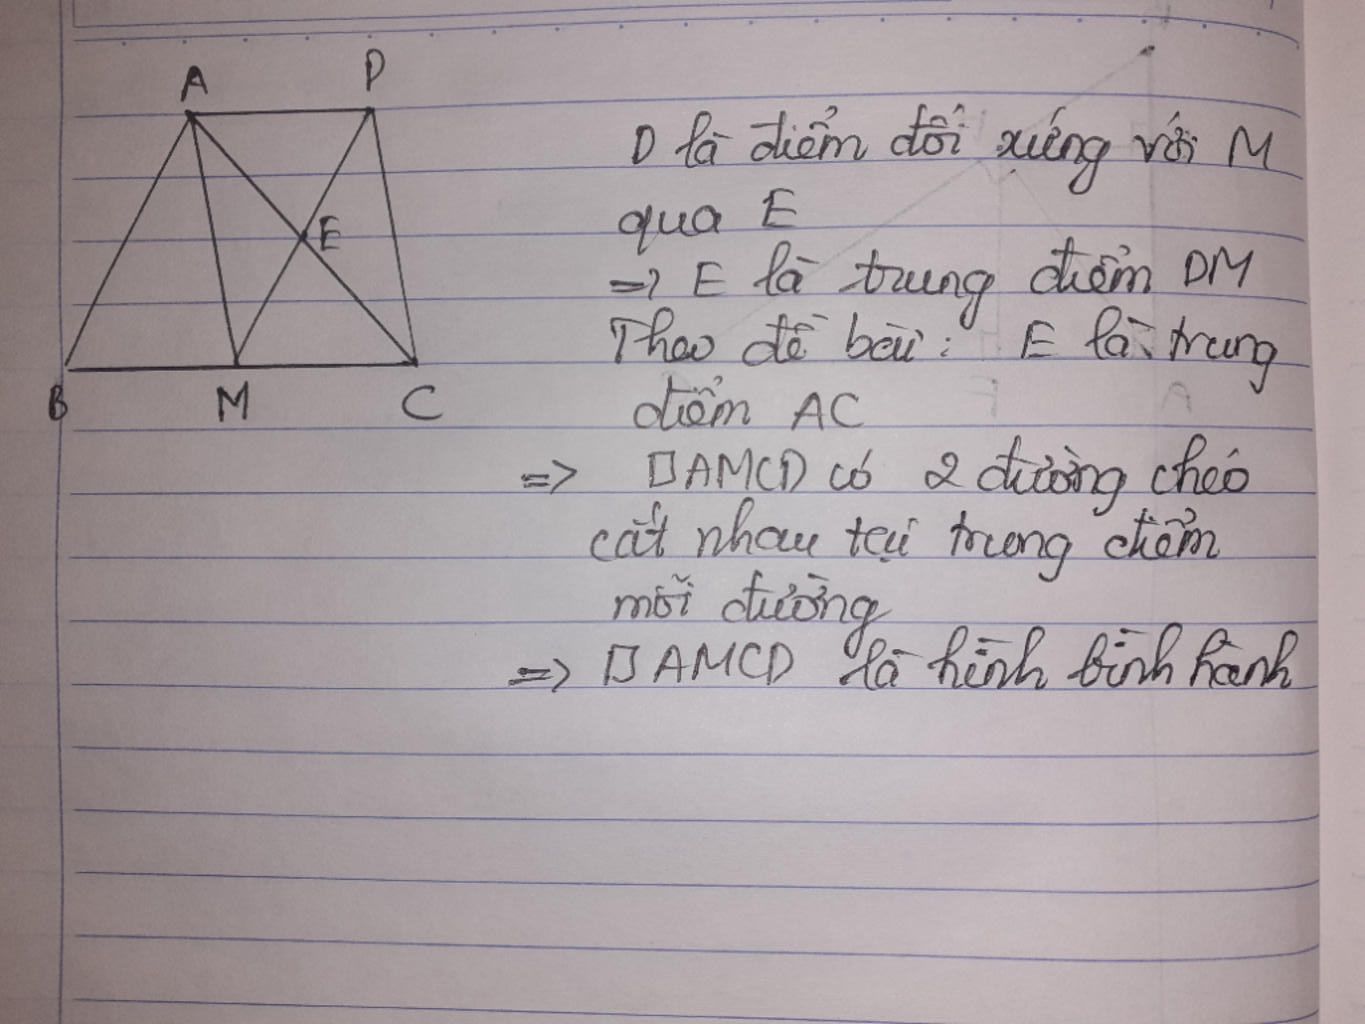 A
D
E
B
M
C
D là điểm đối xứng với M
qua E
=> E là trung điểm DM
Theo đề bài: E là trung
điểm AC
=> □AMCD có 2 đường chéo
cắt nhau tại trung điểm
mỗi đường
=> □AMCD là hình bình hành